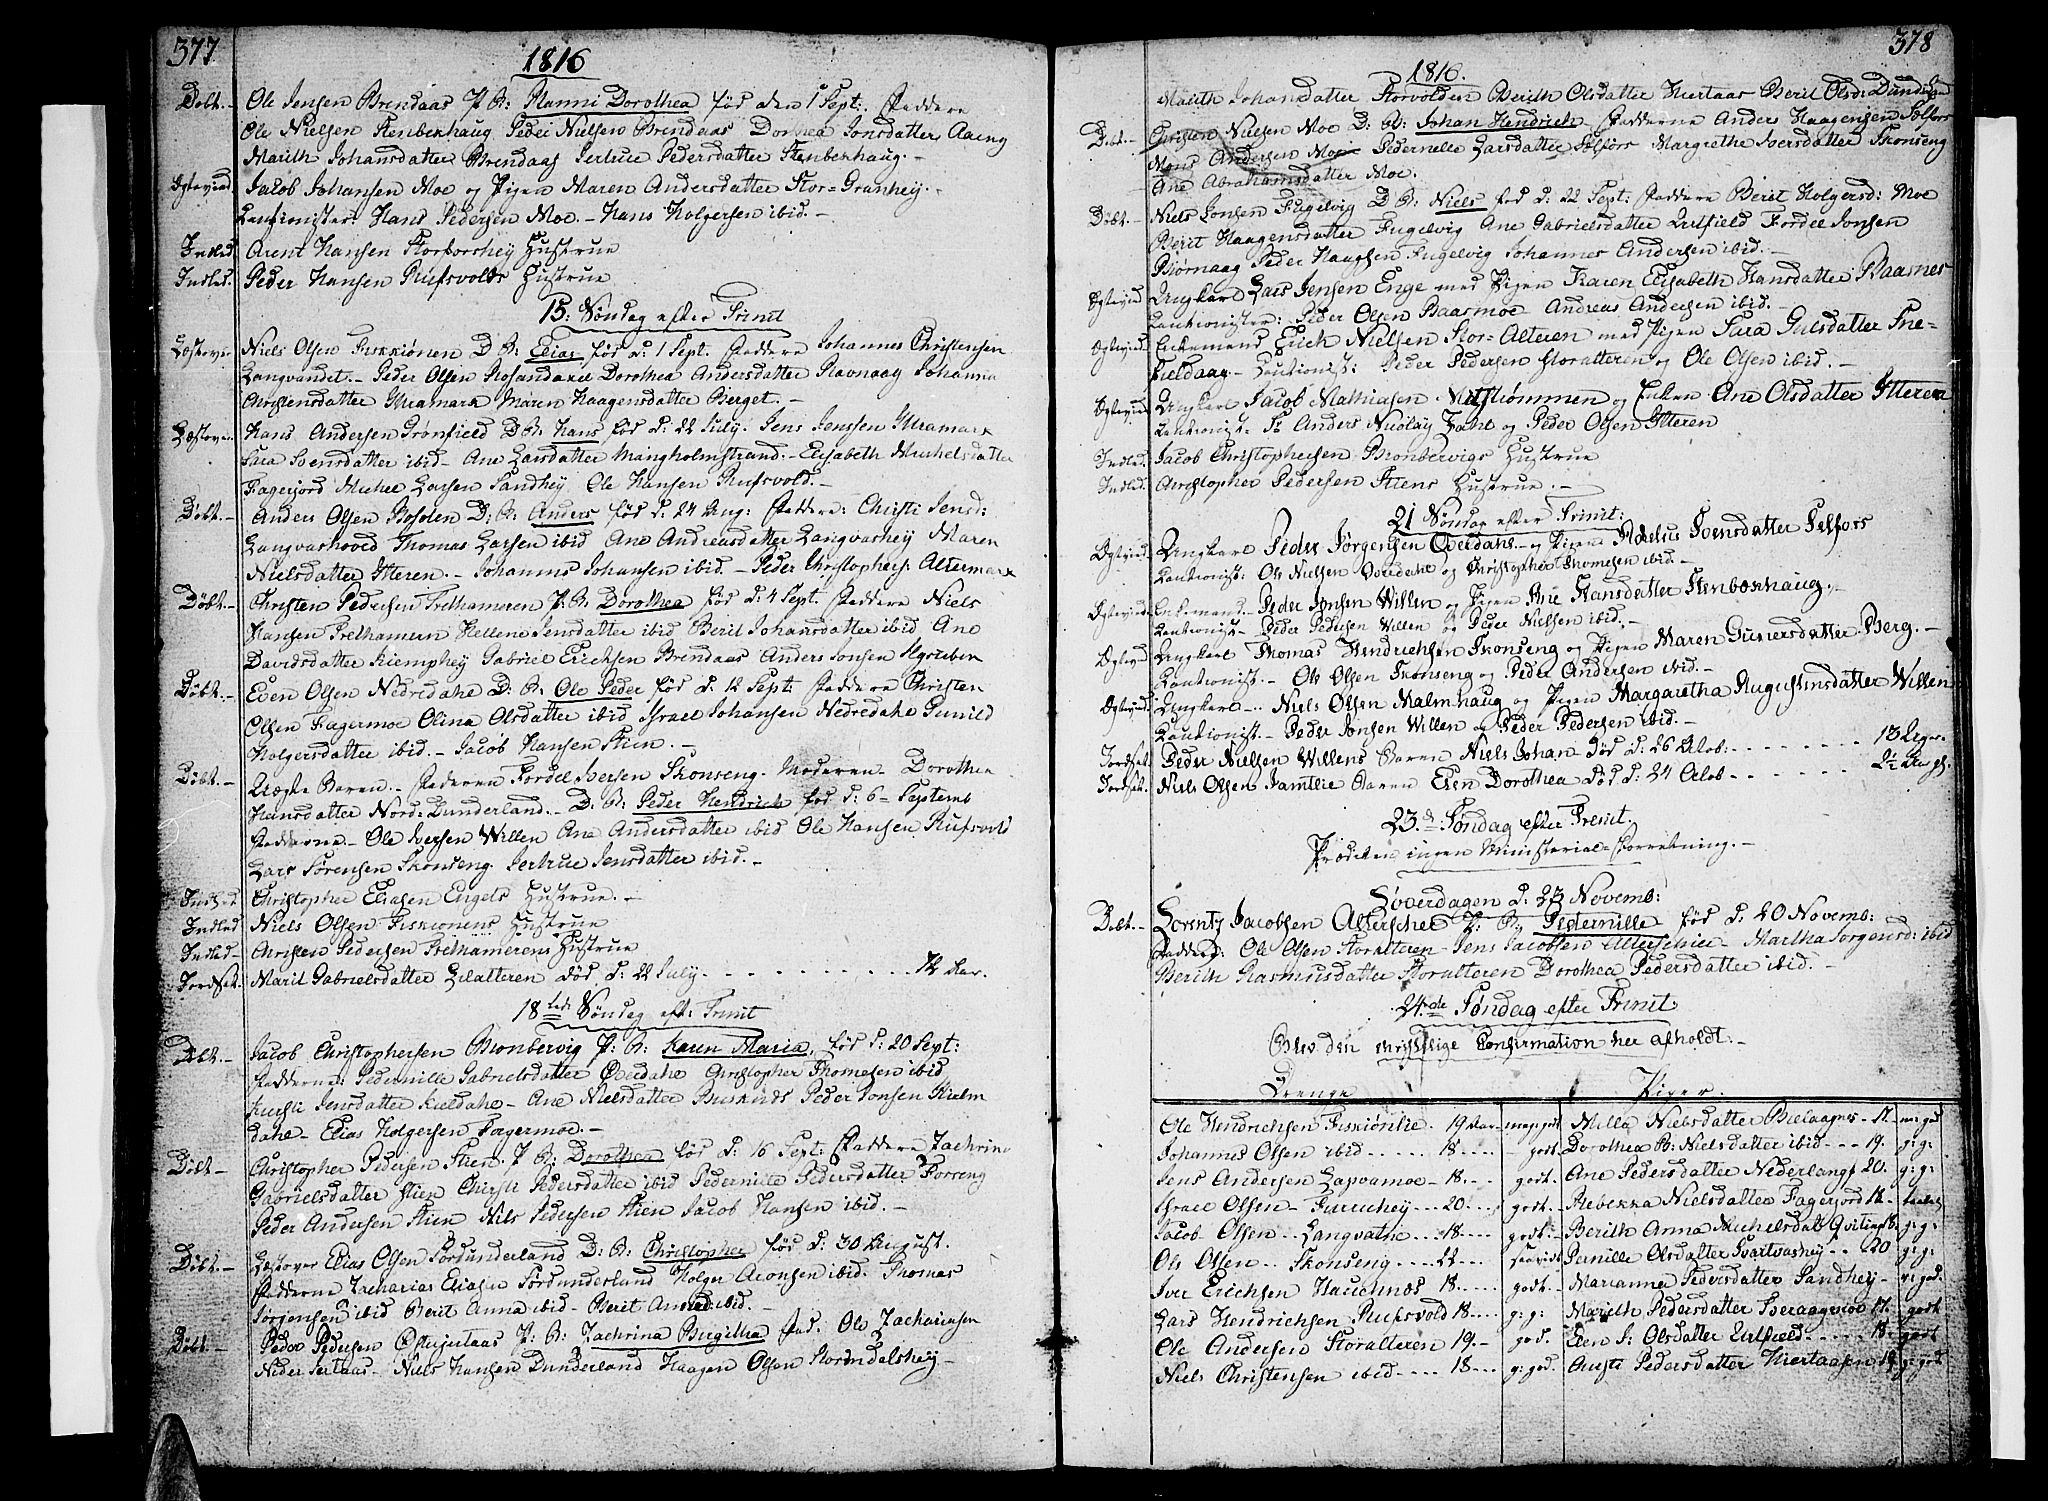 377
1816
Döbt. – Ole Jensen Brendaas P. B: Nanni Dorothea föd den 1 Sept: Faddere
Ole Nielsen Stenbekhaug Peder Nielsen Brendaas Dorthea Jonsdatter
Marith Johansdatter Brendaas Sertrue Pedersdatter Stenbekhaug. –
Ægtevied Jacob Johansen Moe og Pigen Maren Andersdatter Stor=Granhey. –
Cautionister: Hans Pedersen Moe. – Hans Holgersen ibid. –
Indled. Arent Hansen Storforshey Hustrue
Indled. Peder Hansen Rufsvolds Hustrue
15: Söndag efter Trinit
Niels Olsen Fiskiönen D. B: Elias föd d: 1 Sept. Faddere Johannes Christensen
Langvandet. – Peder Olsen Dorothea Andersdatter Ravnaag Johanna
Christensdatter Maren Haagensdatter Berget. –
Hans Andersen Grönfield D. B: Hans föd d: 22 July. Jens Jenssen
Sara Svensdatter ibid – Ane Larsdatter Mangholmstrand. – Elisabeth Michelsdatter
Fagerjord Michel Larsen Sandhey Ole Hansen Rufsvold. –
Döbt. – Anders Olsen D: B: Anders föd d: 24 Aug: Faddere: Christi Jensd:
Langvashoved Thomas Larsen ibid Ane Andreasdatter Langvashey Maren
Nielsdatter Ytteren. – Johannes Johansen ibid. – Peder Christophers: Altermark
Döbt. – Christen Pedersen Frelhameren P: B: Dorothea föd d: 4 Sept. Faddere Niels
Hansen Frelhamern Hellene Jensdatter ibid Berit Johansdatter ibid Ane
Davidsdatter Kiemphey Gabriel Ericksen Brendaas Anders Jonsen
Döbt. – Even Olsen Nedredahl D: B. Ole Peder föd d. 12 Sept: Faddere Christen
Olsen Fagermoe Olina Olsdatter ibid Israel Johansen Nedredahl Gunild
Holgersdatter ibid. – Jacob Hansen Stien. –
Döbt. – Uægte Barn. – Faderen Fordel Iversen Skonseng. Moderen – Dorothea
Hansdatter Nord=Dunderland. – D. B: Peder Hendrich föd d: 6 – Septemb
Fadderne – Ole Iversen Willen Ane Andersdatter ibid Ole Hansen Rufsvold
Lars Sörensen Skonseng. Sertrue Jensdatter ibid. –
Indled Christopher Eliasen Engets Hustrue. –
Indled Niels Olsen Fiskionens Hustrue
Indled – Christen Pedersen Frelhamerens Hustrue
Jordfæt. Marit Gabrielsdatter död d: 22 July. . . . . . . . . . 72 Aar.
18 Söndag eft: Trinit
Döbt. – Jacob Christophersen Bronbervig P: B: Karen Maria, föd d: 20 Sept:
Fadderne: Pedernille Gabrielsdatter Overdahl Christopher Thomesen ibid
Kiersti Jensdatter Kieldahl – Ane Nielsdatter Peder Jonsen Hielm
dahl – Elias Holgersen Fagermoe. –
Döbt – Christopher Pedersen Stien. P. B: Dorothea föd d: 16 Sept: Faddere Zachrina
Gabrielsdatter Stien Chirsti Pedersdatter ibid Pedernille Pedersdatter Forseng
Peder Andersen Stien Nils Pedersen Stien Jacob Hansen ibid. –
Döbt. – Elias Olsen Fordunderland D: B: Christopher föd d: 30 August.
Fadderne Zacharias Eliasen Fordunderland Holger Aronsen ibid. Thomas
Jörgensen ibid Berit Anna ibid – Berit ibid. –
Döbt. – Peder Pedersen P: B: Zachrina Birgitha Fad: Ole Zachariasen
Niels Hansen Dunderland Haagen Olsen Stormdalshey –
378
1816.
Marith Johansdatter Storvolden Berith Olsdatter Hiertaas Berit Olsd: Dunderland
Döbt. – Christen Nielsen Moe D: B: Johan Hendrich – Fadderne Anders Haagensen Selfors
Mons Andersen Moe Pedernelle Larsdatter Selfors Margrethe Iversdatter Skonseng
Ane Abrahamsdatter Moe.
Döbt. – Niels Jonsen Fugelvig D. B: Niels föd d: 22 Sept: Faddere Berit Holgersd: Moe
Berit Haagensdatter Fugelvig Ane Gabrielsdatter Fordel Jonsen
Biörnaag Peder Haagsen Fugelvig Johannes Andersen ibid. –
Ægtevied Ungkarl Lars Jensen Enge med Pigen Karen Elisabeth Hansdatter Baasmoe
Cautionister: Peder Olsen Baasmoe – Andreas Andersen ibid. –
Ægtevied. Enkemand Erick Nielsen Stor=Alteren med Pigen Sara Salsdatter Sne=
fieldaag. – Cautionist: Peder Pedersen Storalteren og Ole Olsen ibid. –
Ægtevied. Ungkarl Jacob Mathiasen og Enken Ane Olsdatter Ytteren
Cautionist. Sr Anders Nicolay og Peder Olsen Ytteren
Indled. Jacob Christophersen Bronbervigs Hustrue
Indled. Christopher Pedersen Stiens Hustrue. –
21 Söndag efter Trinit:
Ægtevied. Ungkarl Peder Jörgensen Overdahl og Pigen Svensdatter Selfors
Cautionist: Ole Nielsen Overdahl og Christopher Thomesen ibid. –
Ægtevied. Enkemand. – Peder Jonsen Willen og Pigen Ane Hansdatter Stenbekhaug. –
Cautionist. – Peder Pedersen Willen og Peder Nielsen ibid. –
Ægtevied Ungkarl Thomas Hendrichsen Skonseng og Pigen Maren Gunersdatter Berg. –
Cautionist. – Ole Olsen Skonseng og Peder Andersen ibid. –
Ægtevied. Ungkarl – Niels Olsen Malmhaug og Pigen Margaretha Augustinsdatter Willen
Cautionist. – Peder Jonsen Willen og Peder Pedersen ibid. –
Jordfæt. Peder Nielsen Willens Baren Niels Johan död d: 26 Octob: . . . . . . . . 13 Uger.
Jordfæt. Niels Olsen Baren Elen Dorothea död d. 24 Octob . . . . . . . 2½ Aar gl.
23.de Söndag efter Trinit.
Prædiken ingen Ministerial=Forretning. –
Löverdagen d. 23 Novemb:
Döbt. – Lorentz Jacobsen Alterschier P: B. Pedernille föd d. 20 Novemb:
Fadder: Ole Olsen Storalteren – Jens Jacobsen Alterschier – Martha Jörgensd: ibid
Berith Rasmusdatter Storalteren Dorothea Pedersdatter ibid. –
24.de Söndag efter Trinit
Blev den christelige Confirmation her afholdt. –
Drenge Piger.
Ole Hendrichsen Fiskiönlie. 19 Aar – meget god Milla Nielsdatter 17. – m: god
Johannes Olsen ibid . . . . . 18 . . . – godt. Dorothea B: Nielsdatter ibid . . . 19. g: g:
Jens Andersen Lapvamoe – 18. . – godt. Ane Pedersdatter Nederlangf 20. g: g:
Israel Olsen – Furuhey . . . 20 . . . godt. Rebekka Nielsdatter Fagerjord 18.
Jacob Olsen . . Langvatn . . . 18 . . . godt. – Berith Anna Michelsdatt 18. g: g:
Ole Olsen . . Skonseng . . . 22 . . . Pernille Olsdatter Svartvashey . . 20 g: g:
Iver Erichsen 18 . . . godt. – Marianne Pedersdatter Sandhey – g: god.
Lars Hendrichsen Rufsvold 18 . . . g: g: Marith Pedersdatter 17. godt
Ole Andersen Storalteren 19. – god. Elen S: Olsdatter . . . . 18. godt
Niels Christensen ibid . . . . 18 . . . g: god. Pedersdatter Hiertaasen g: god